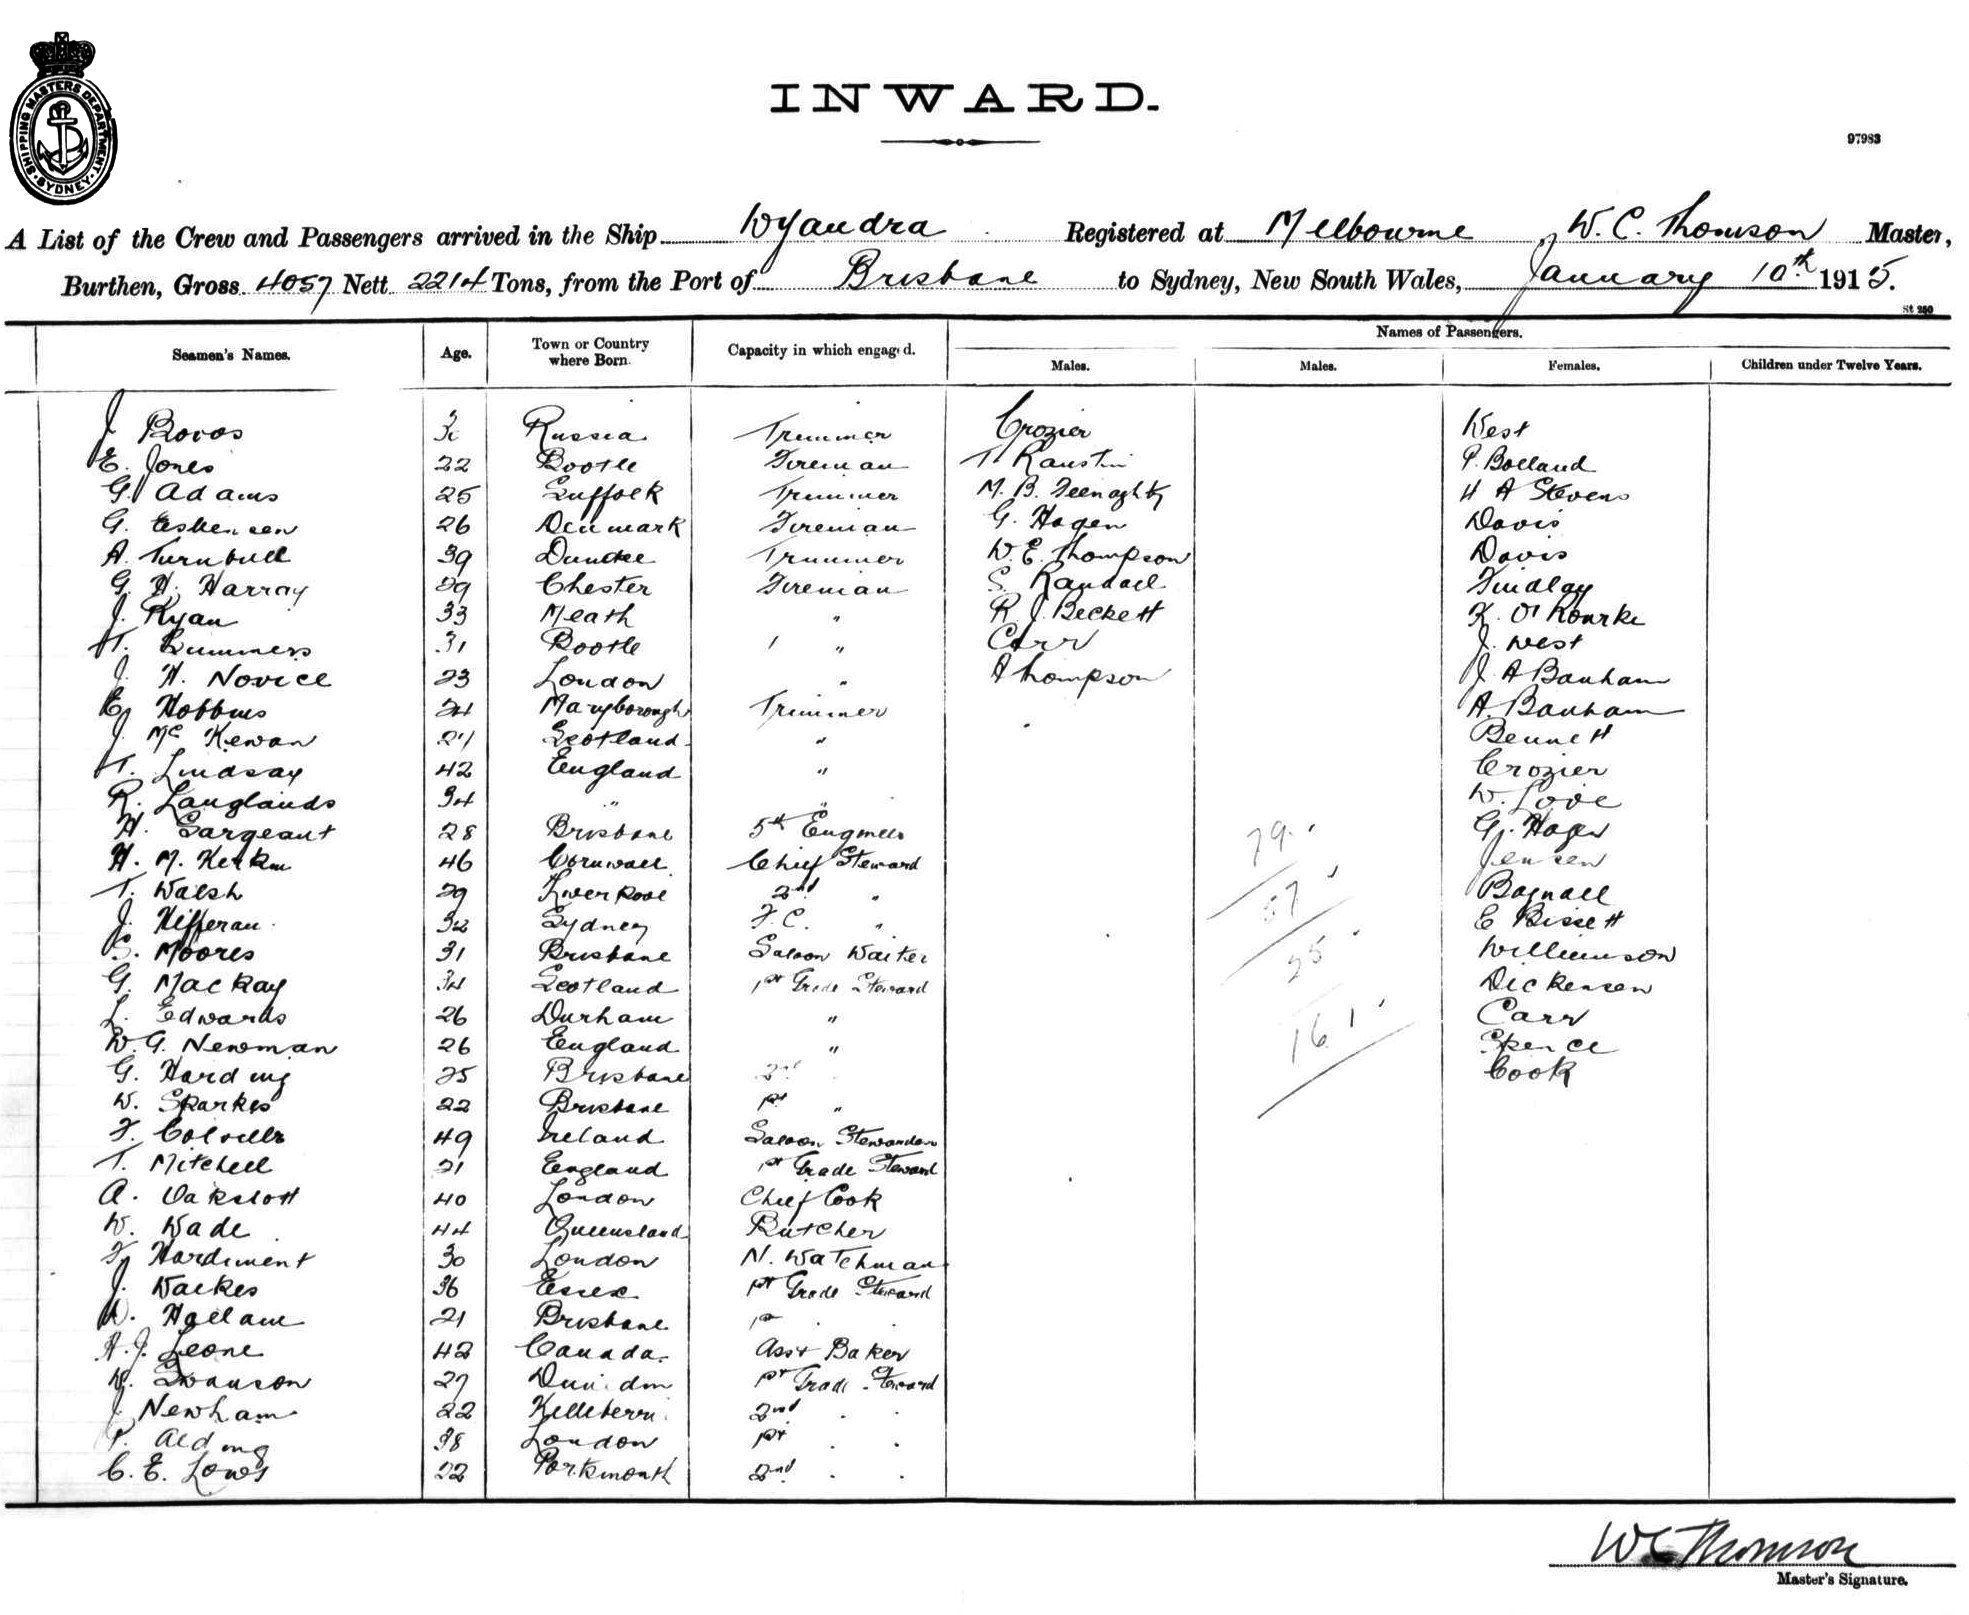 SHIPPING MASTERS DEPARTMENT. SYDNEY
INWARD.
97983
A List of the Crew and Passengers arrived in the Ship Wyandra Registered at Melbourne W. C. Thomson Master,
Burthen, Gross 4057 Nett 2214 Tons, from the Port of Brisbane to Sydney, New South Wales, January 10th 1915.
St 250
Names of Passengers.
Seamen's Names. Age. Town or Country where Born. Capacity in which engaged. Males. Males. Females. Children under Twelve Years.
J Boros Russia Trimmer Crozier West
E. Jones 22 Bootle Fireman T Raustin P. Bolland
G. Adams 25 Suffolk Trimmer M. B. Feenaghty H A Stevens
G. Esbensen 26 Denmark Fireman G. Hagen Davis
A. Turnbull 39 Dundee Trimmer W. E. Thompson Davis
G. H. Harray 29 Chester Fireman S. Randall Findlay
J. Ryan 33 Meath " R. J. Beckett K. O'Rourke
T. 31 Bootle " Carr J. West
J. H. Novice 23 London " Thompson J. A Banham
E. Hobbins 24 Maryborough Trimmer A. Banham
J. McKewan Scotland " Bennett
T. Lindsay 42 England " Crozier
R. Langlands 34 " " W. Love
H. Sargeant 28 Brisbane 5th Engineer 79 G. Hagen
H. M. 46 Cornwall Chief Steward Jensen
T. Walsh 29 Liverpool 2nd " 57 Bagnall
J. Hefferan 32 Sydney F. C. " E Bissett
S. Moores 31 Brisbane Saloon Waiter 25 Williamson
G. MacKay 34 Scotland 1st Grade Steward Dickensen
L. Edwards 26 Durham " Carr
W. G. Newman 26 England " 161 Spence
G. Harding 25 Brisbane 2nd Cook
W. Sparkes 22 Brisbane 1st "
F. 49 Ireland Saloon Stewardess
T. Mitchell 21 England 1st Grade Steward
A. Oakslott 40 London Chief Cook
W. Wade 44 Queensland Butcher
F. Hardiment 30 London N. Watchman
J. Walkes 36 Essex 1st Grade Steward
W. Hallam 21 Brisbane 1st
A. J. Leone 42 Canada Asst Baker
W. Swanson 27 Dunedin 1st Grade Steward
J Newham 22 2nd
P. Alding 38 London 1st
C. E. Lows 22 Portsmouth 2nd
W C Thomson
Master's Signature.